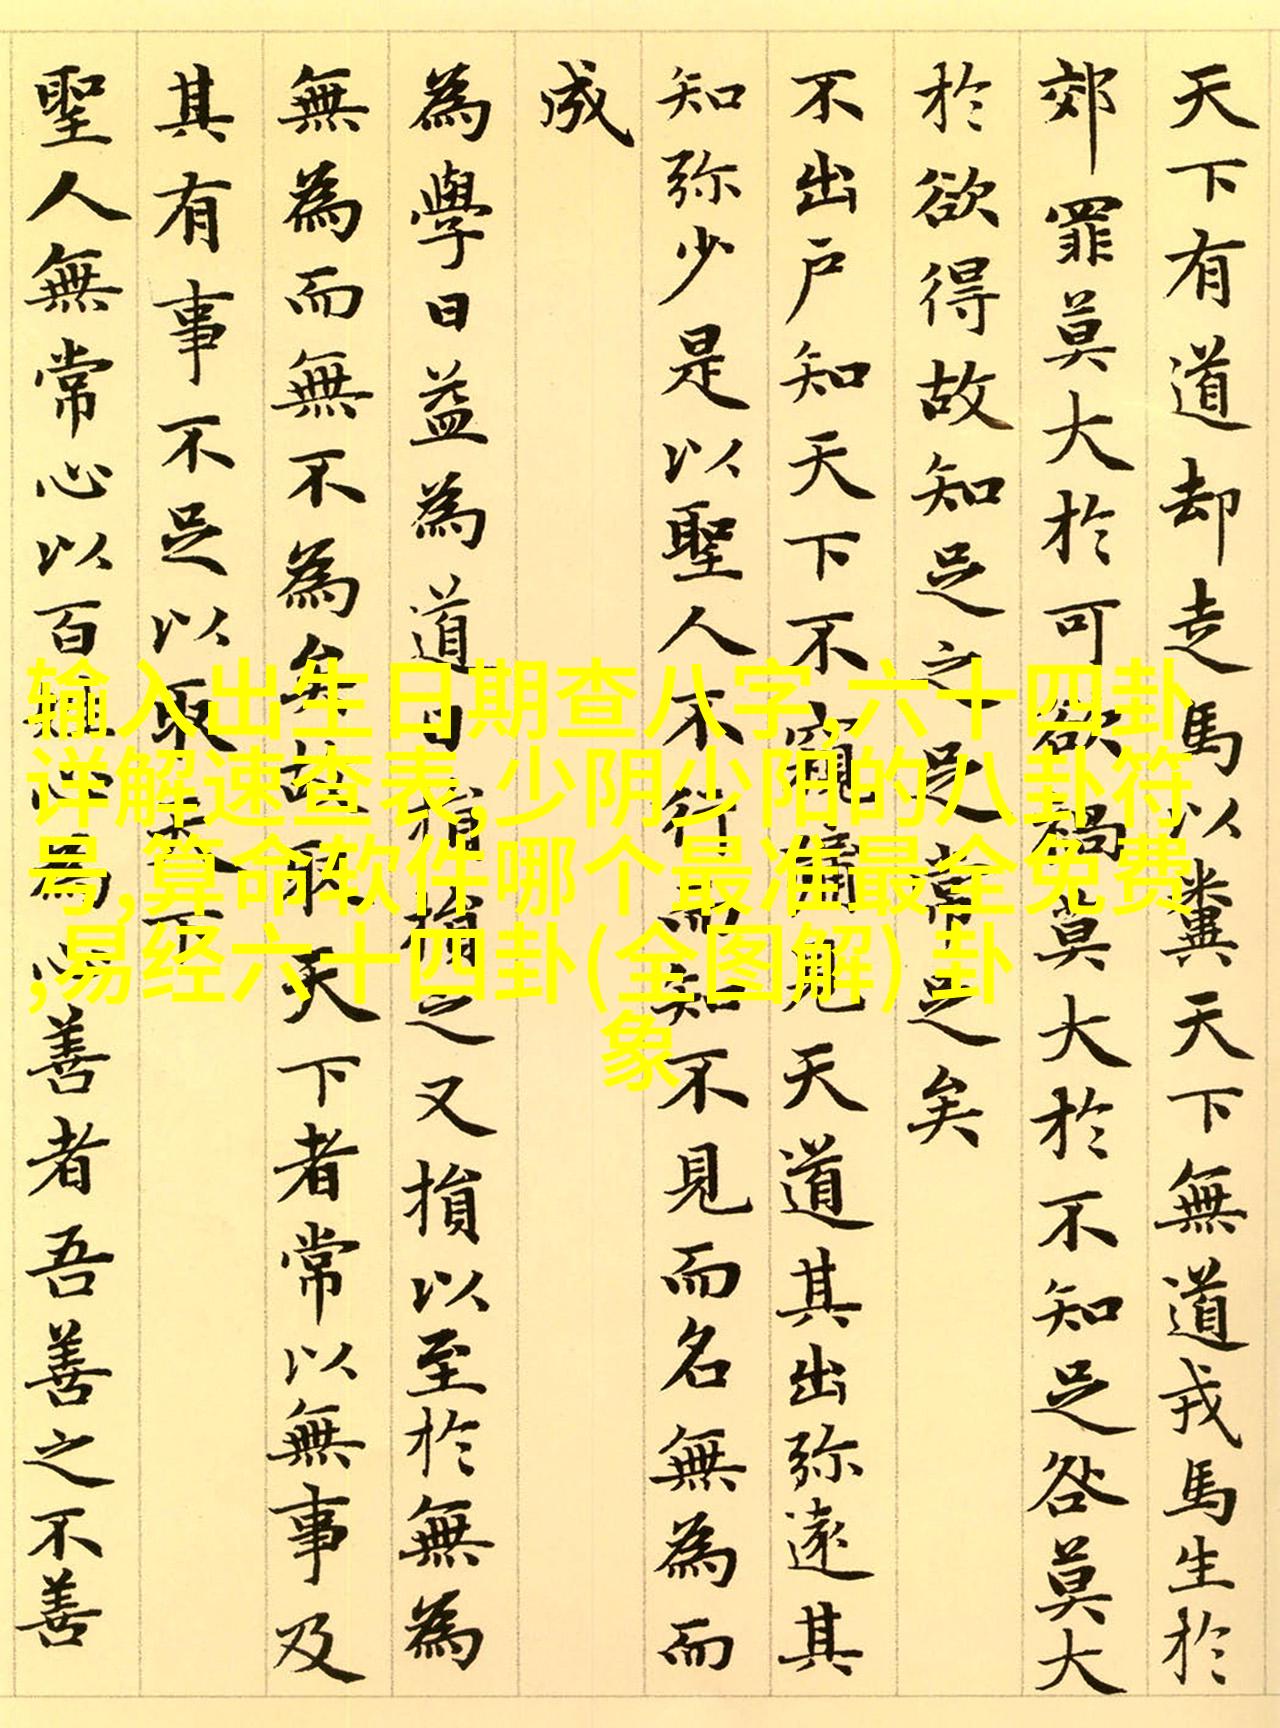 天下有道却走馬以糞天下無道戎馬生於
郊罪莫大於可欲禍莫大於不知足咎莫大
於欲得故知足之足常足矣
不出户知天下不窺牖見天道其出弥遠其
知弥少是以聖人不行而知不見而名無為而
成
為學日益為道日損損之又損以至於無為
無為而無不為矣故取天下者常以無事及
其有事不足以取天下
聖人無常心以百姓心為心善者吾善之不善
输入出生日期查八字,六十四卦
详解速查表,少阴少阳的八卦符
号,算命软件哪个最准最全免费
,易经六十四卦(全图解) 卦
象